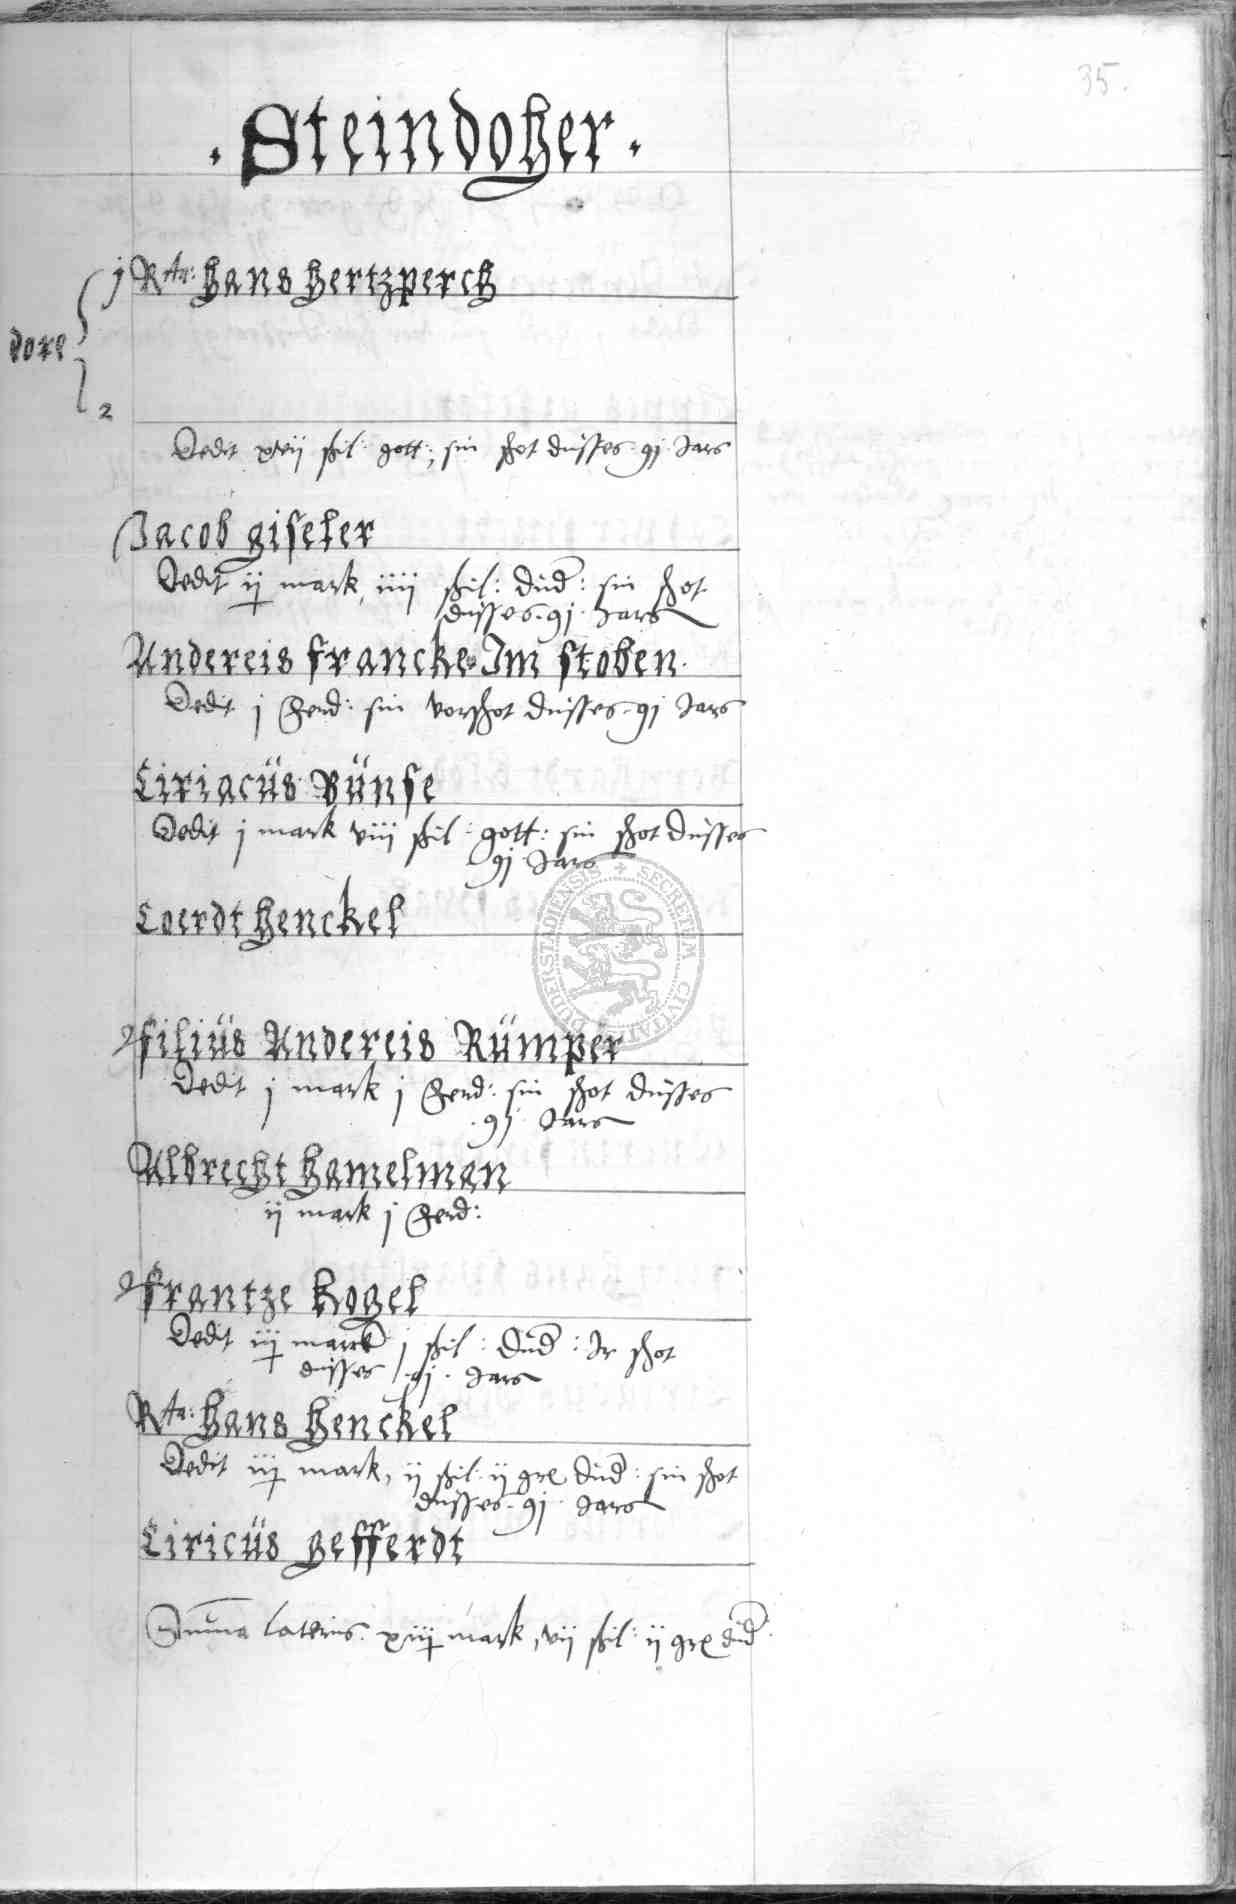 35.
. Steindoher .
j R An: Hans Hertzperch
dore
2
Dedit xvij shil: gott: sin shot dusses 91 Jars
Jacob giseler
Dedit ij mark iiij shil: dud: sin shot
dusses 91 Jars
Andereis francke Im stoben.
Dedit j ferd: sin vorshot dusses 91 Jars
Ciriacüs Bünse
Dedit j mark viij shil: gott: sin shot dusses
91 Jars
Coerdt Henckel
filiüs Andereis Rümper
Dedit j mark j ferd: sin shot dusses
.91 Jars
Albrecht Hamelman
ij mark j ferd:
frantze Kogel
Dedit iij marck j shil: dud: Ir shot
dusses 91. Jars
R An: Hans Henckel
Dedit iij mark, ij shil: ij gr dud: sin shot
dusses. 91 Jars
Ciricüs gefferdt
Summa lateris. xiij mark, vij shil: ij gr dud
SECRETUM CIVITATIS DUDERSTADIENSIS